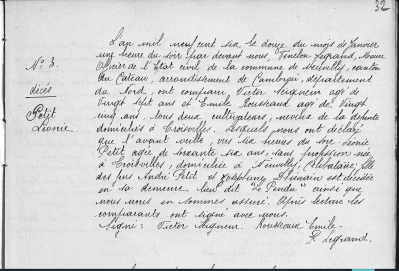 32
L'an mil neuf cent six le douze du mois de Janvier
une heure du soir par devant nous, Fénelon Legrand, Maire
Officier de l'Etat civil de la commune de Neuvilly, canton
du Cateau, arrondissement de Cambrai, département
du Nord, ont comparu Victor Seigneur agé de
vingt sept ans et Emile Rousseaux agé de vingt
un ans, tous deux cultivateurs, neveux de la défunte
domiciliés à Troisvilles. Lesquels nous ont déclaré
que l'avant veille, vers six heures du soir Léonie
Petit agée de soixante six ans, sans profession née
à Troisvilles, domiciliée à Neuvilly, Célibataire, fille
des feus André Petit et Joséphine est décédée
en sa demeure lieu dit "Le Pendu" ainsi que
nous nous en sommes assuré. Après lecture les
comparants ont signé avec nous.
Signé: Victor Seigneur. Rousseaux Emile.
F. Legrand.
N° 3.
décès
Petit
Léonie